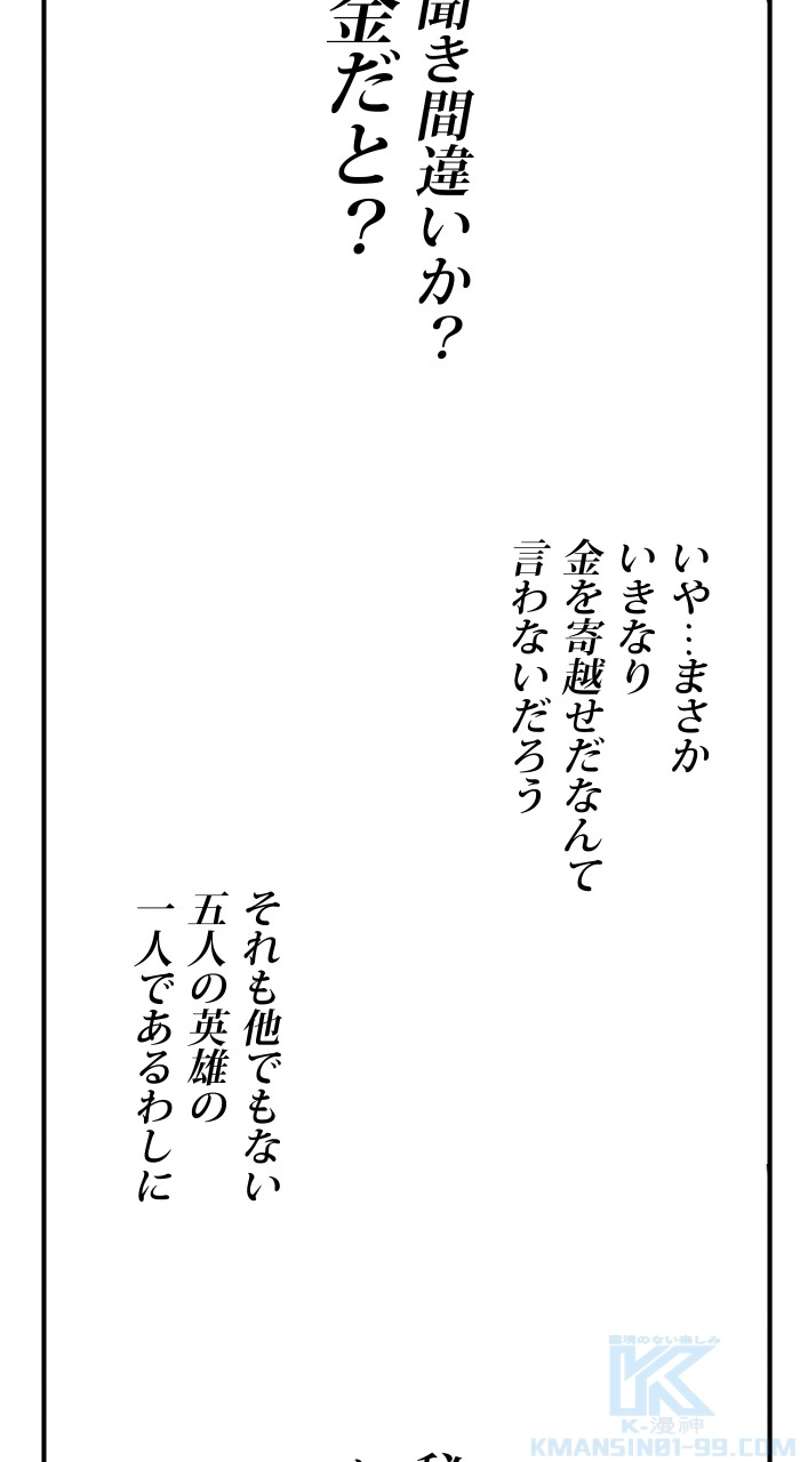 聞き間違いか？
金だと？
いや…まさか
いきなり
金を寄越せだなんて
言わないだろう
それも他でもない
五人の英雄の
一人であるわしに
K-漫神
KMANSIN01-99.COM